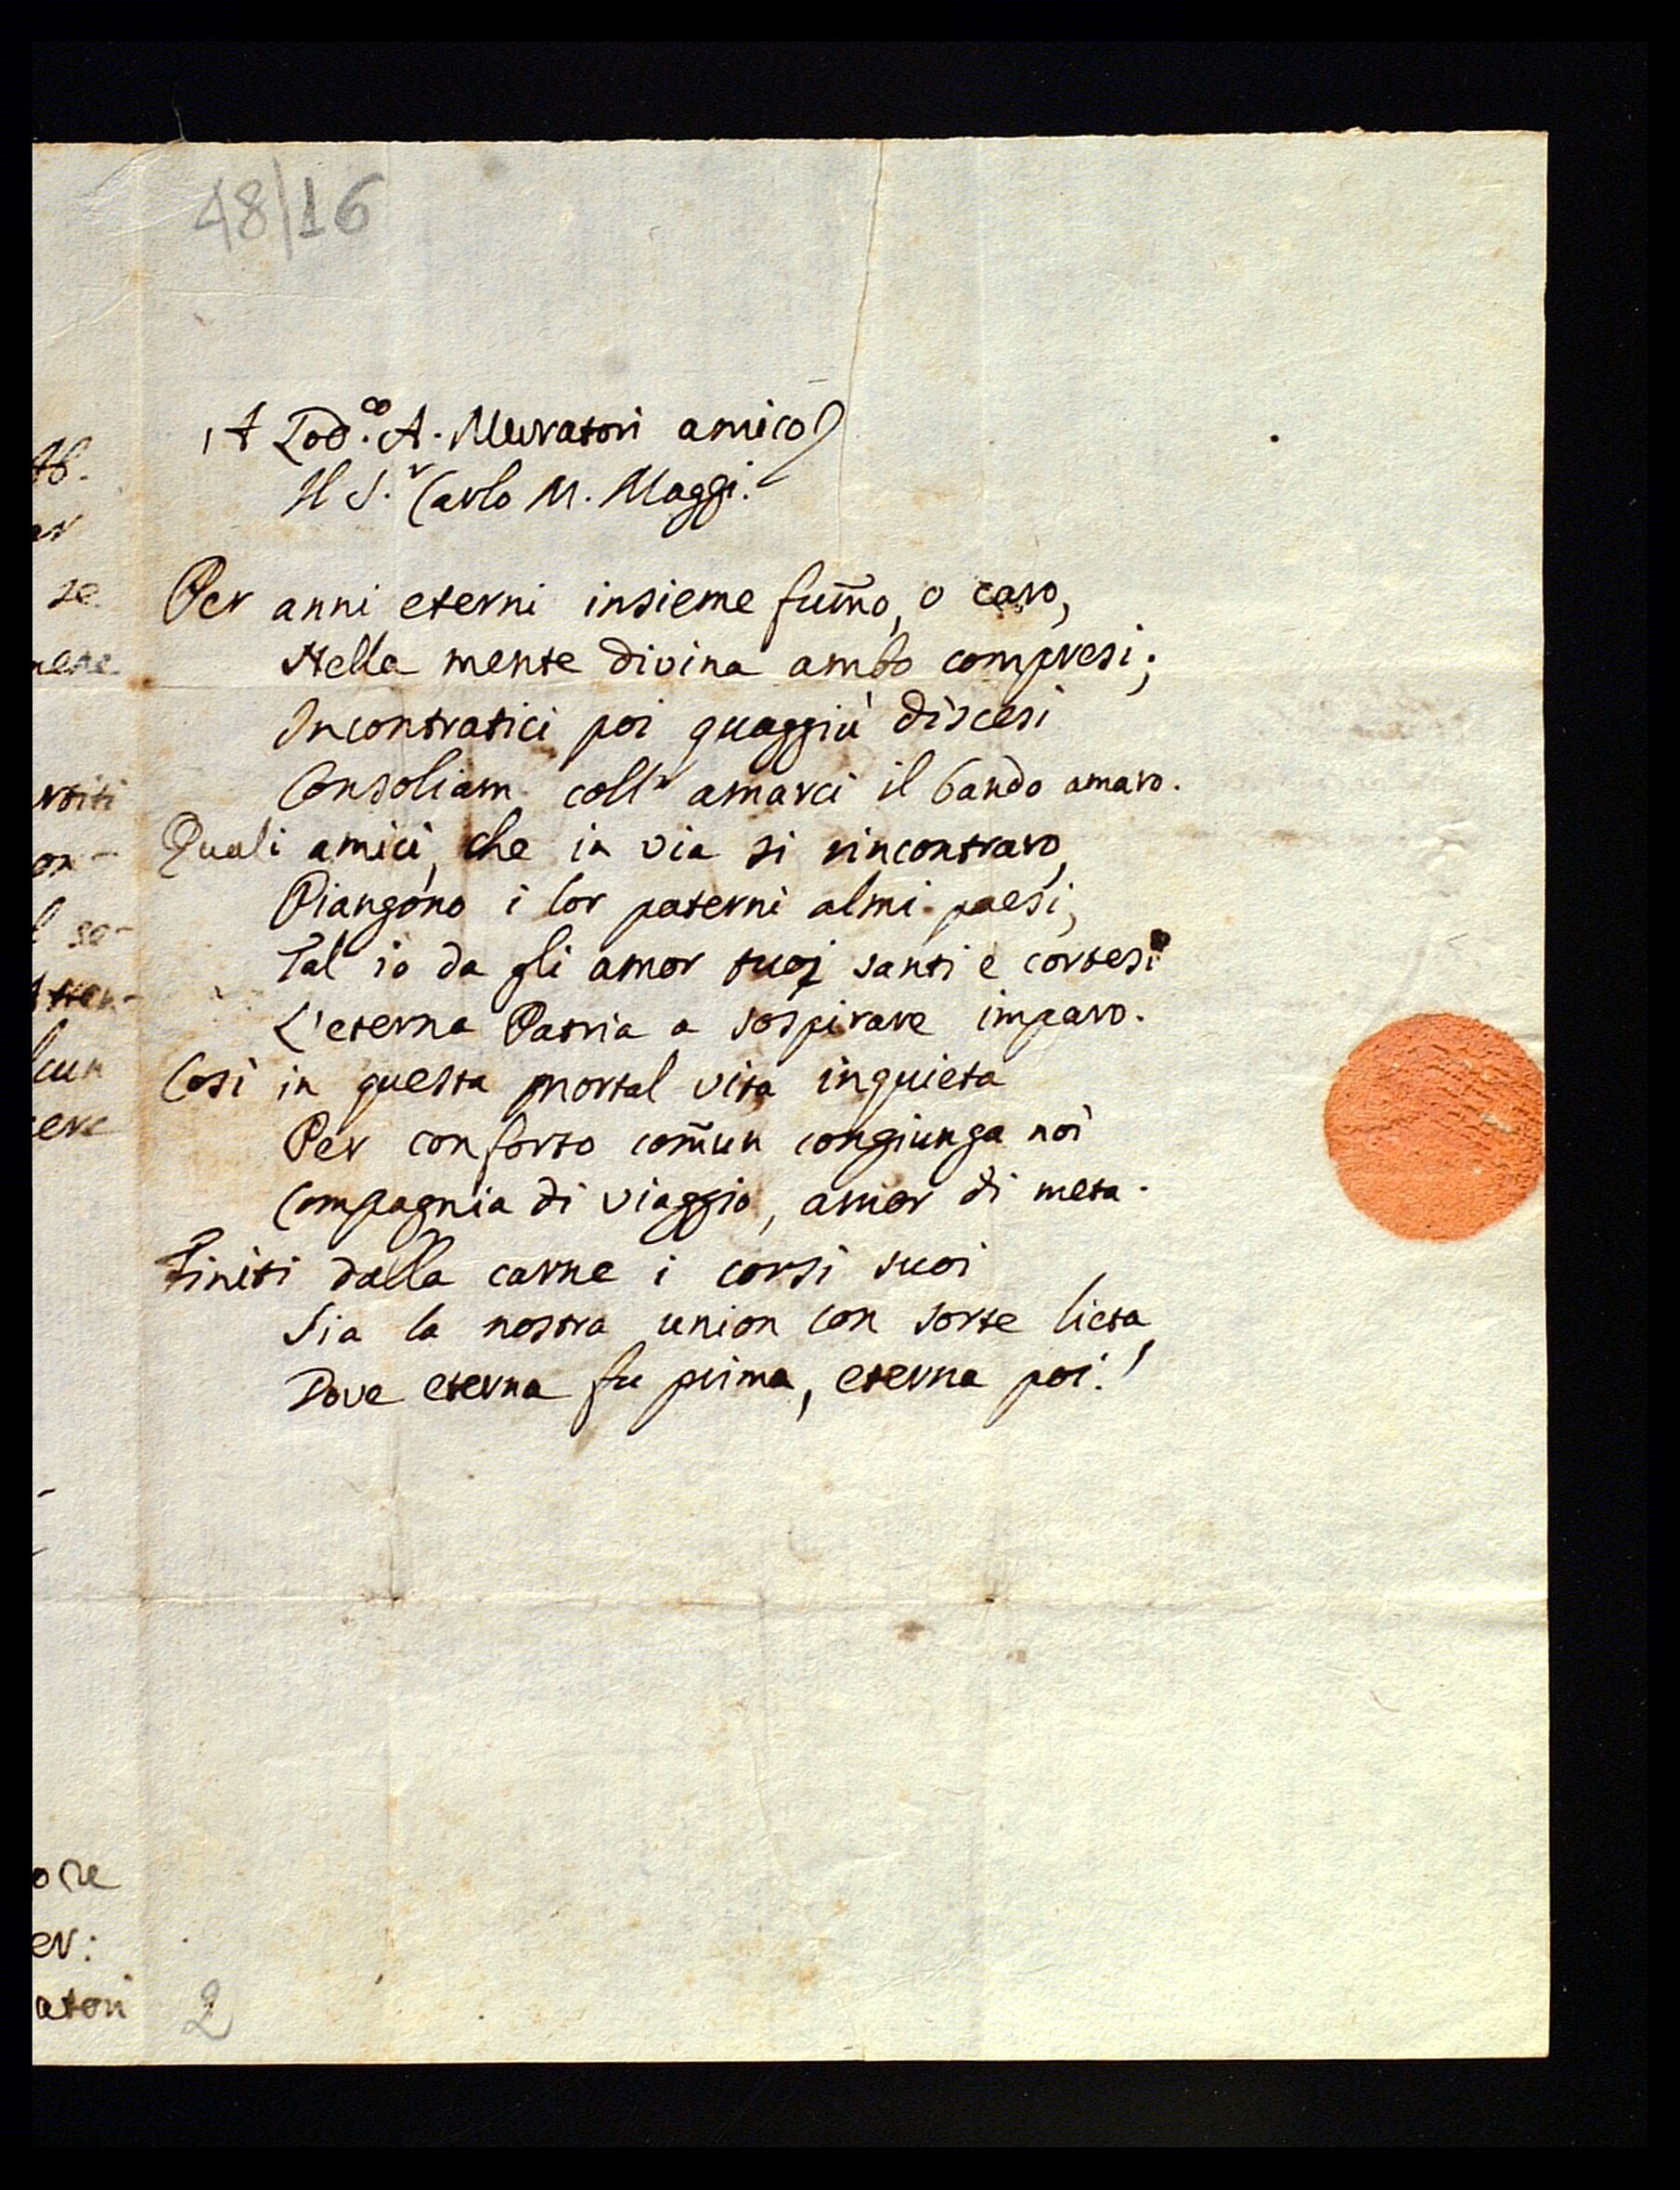 48|16
A Lod.co A. Muratori amico
Il S.r Carlo M. Maggi.
Per anni eterni insieme fum̃o, o caro,
Nella mente divina ambo compresi;
Incontratici poi quaggiù discesi
Consoliam coll' amarci il bando amaro.
Quali amici, che in via si rincontraro,
Piangono i lor paterni almi paesi,
Tal io da gli amor tuoi santi e cortesi
L'eterna Patria a sospirare imparo.
Così in questa mortal vita inquieta
Per conforto com̃un congiunga noi
Compagnia di viaggio, amor di meta.
Finiti dalla carne i corsi suoi
Sia la nostra union con sorte lieta,
Dove eterna fu prima, eterna poi.
2